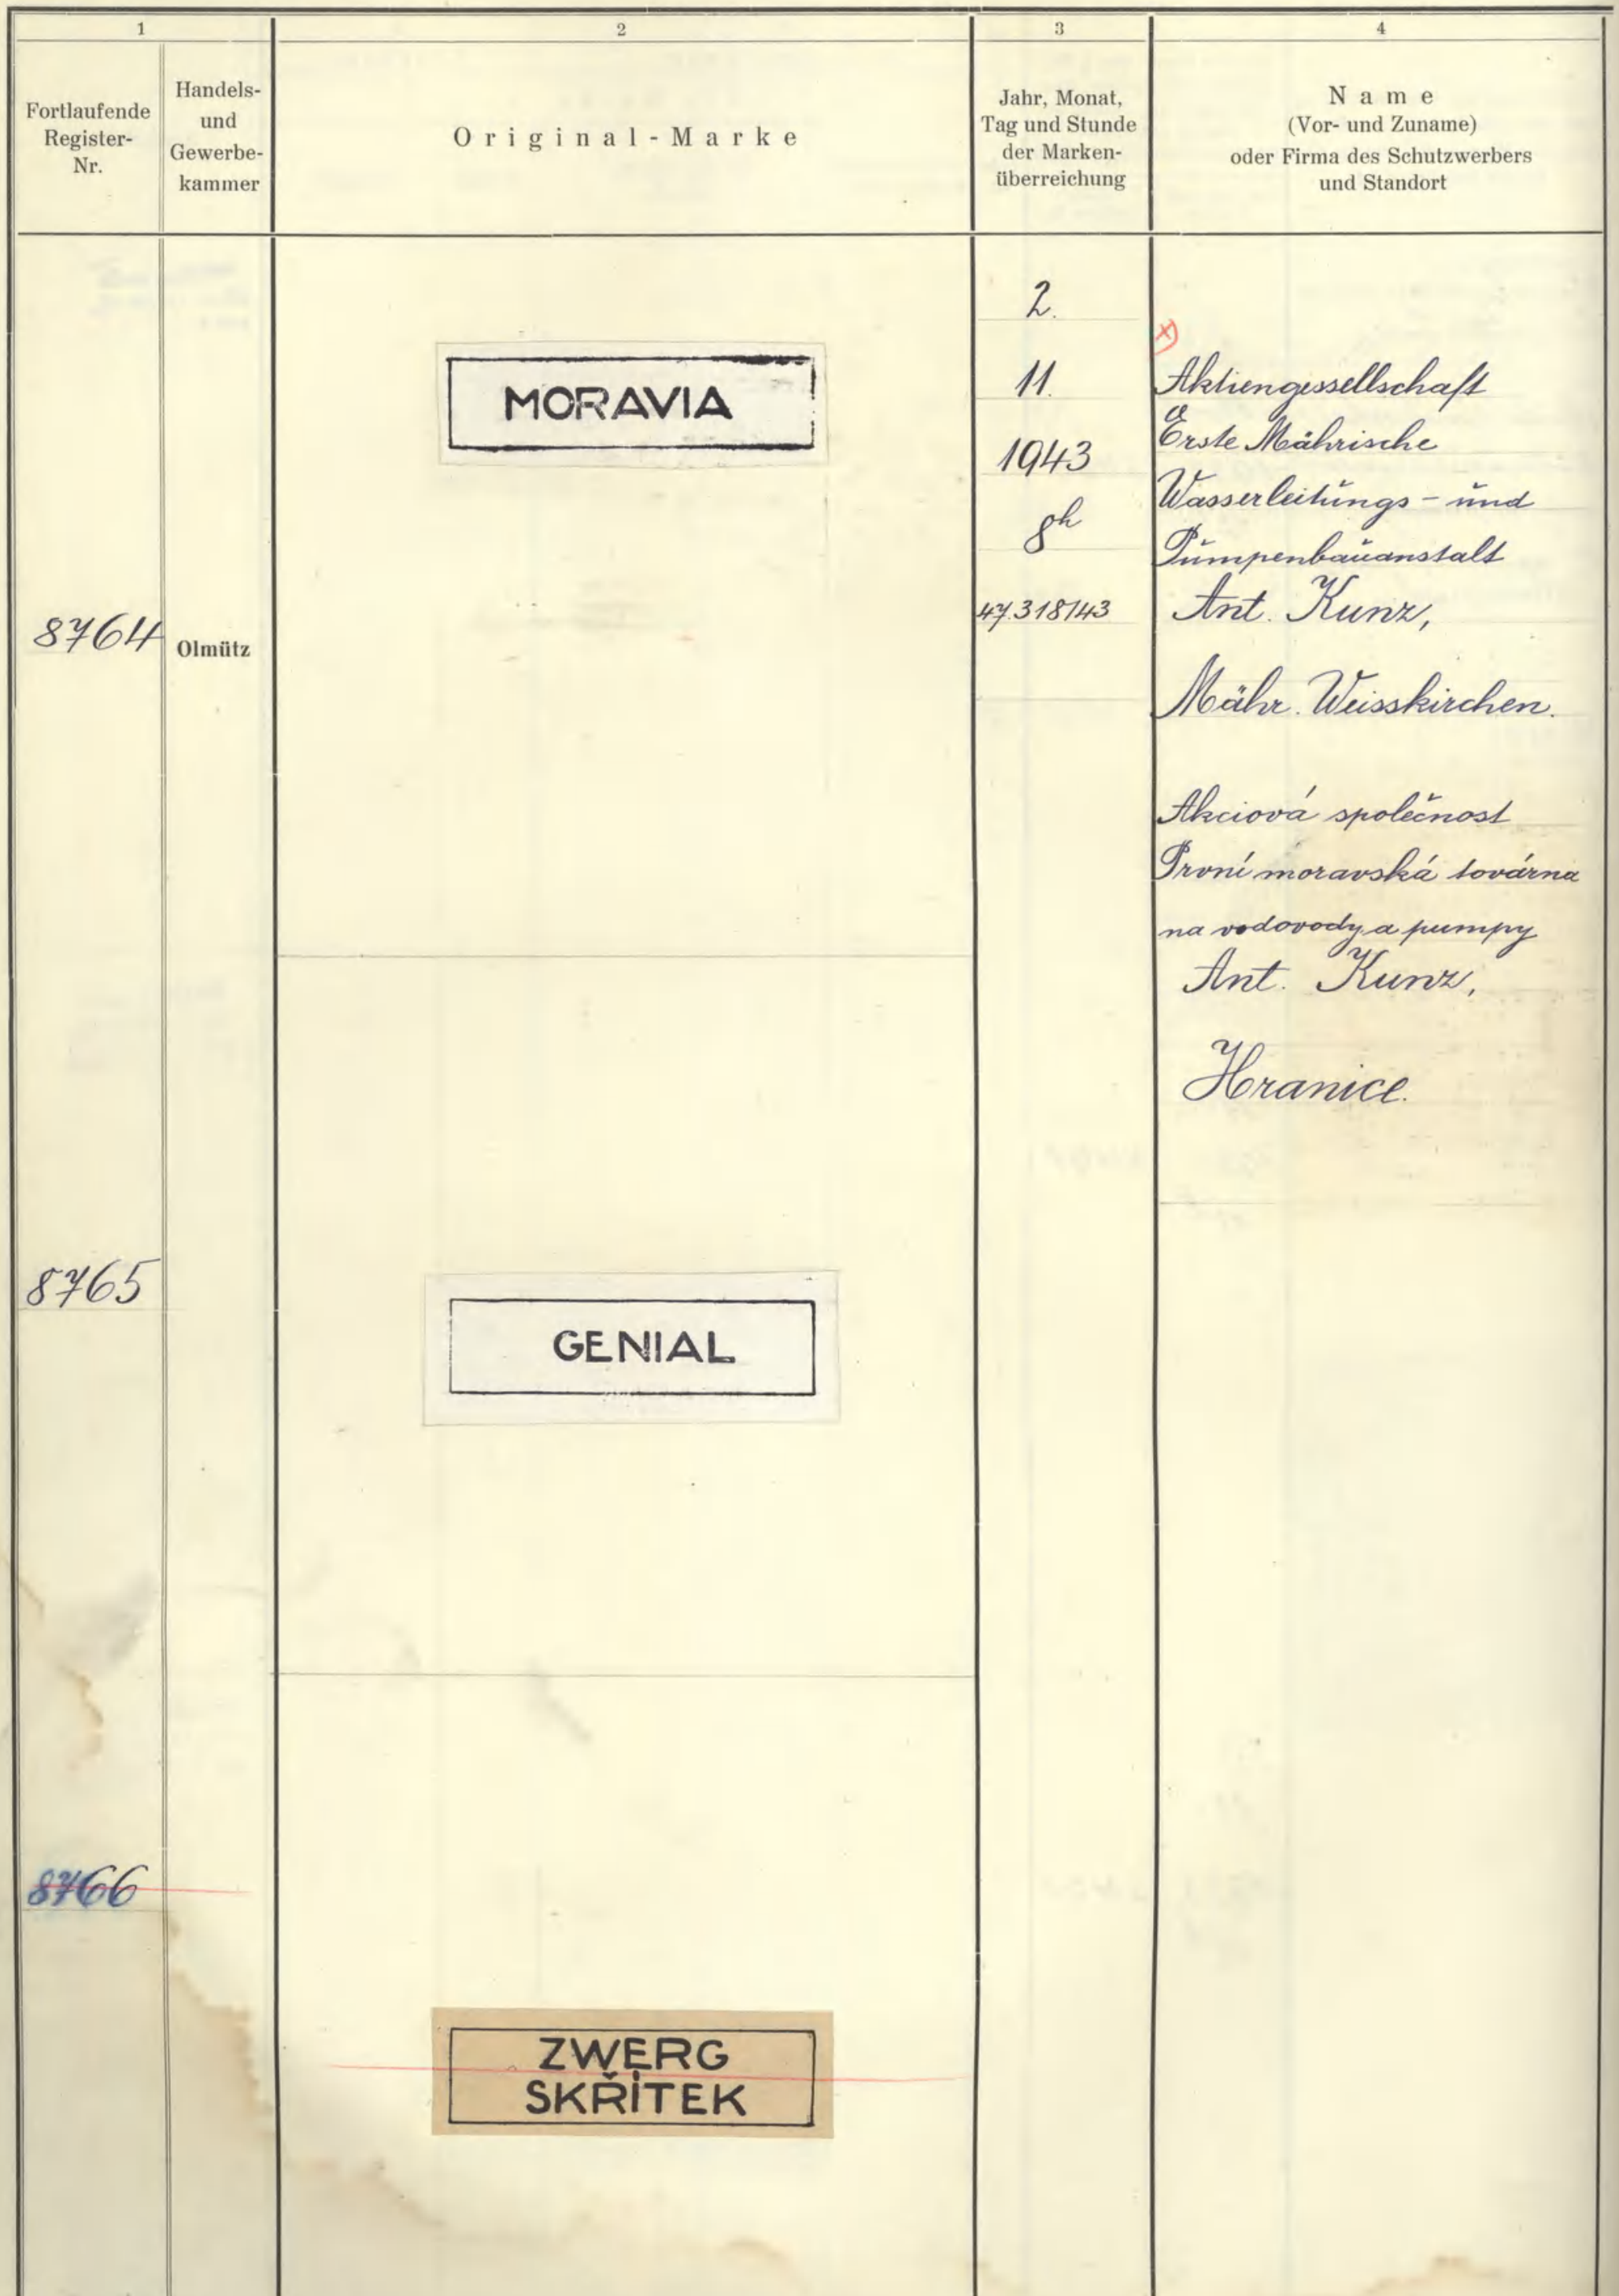 1
2
3
4
Fortlaufende
Register-
Nr.
Handels-
und
Gewerbe-
kammer
Original-Marke
Jahr, Monat,
Tag und Stunde
der Marken-
überreichung
Name
(Vor- und Zuname)
oder Firma des Schutzwerbers
und Standort
8764
Olmütz
MORAVIA
2.
11.
1943
8h
47.318/43
x)
Aktiengessellschaft
Erste Mährische
Wasserleitungs- und
Pumpenbauanstalt
Ant. Kunz,
Mähr. Weisskirchen.
Akciová společnost
První moravská továrna
na vodovody a pumpy
Ant. Kunz,
Hranice.
8765
GENIAL
8766
ZWERG
SKŘÍTEK